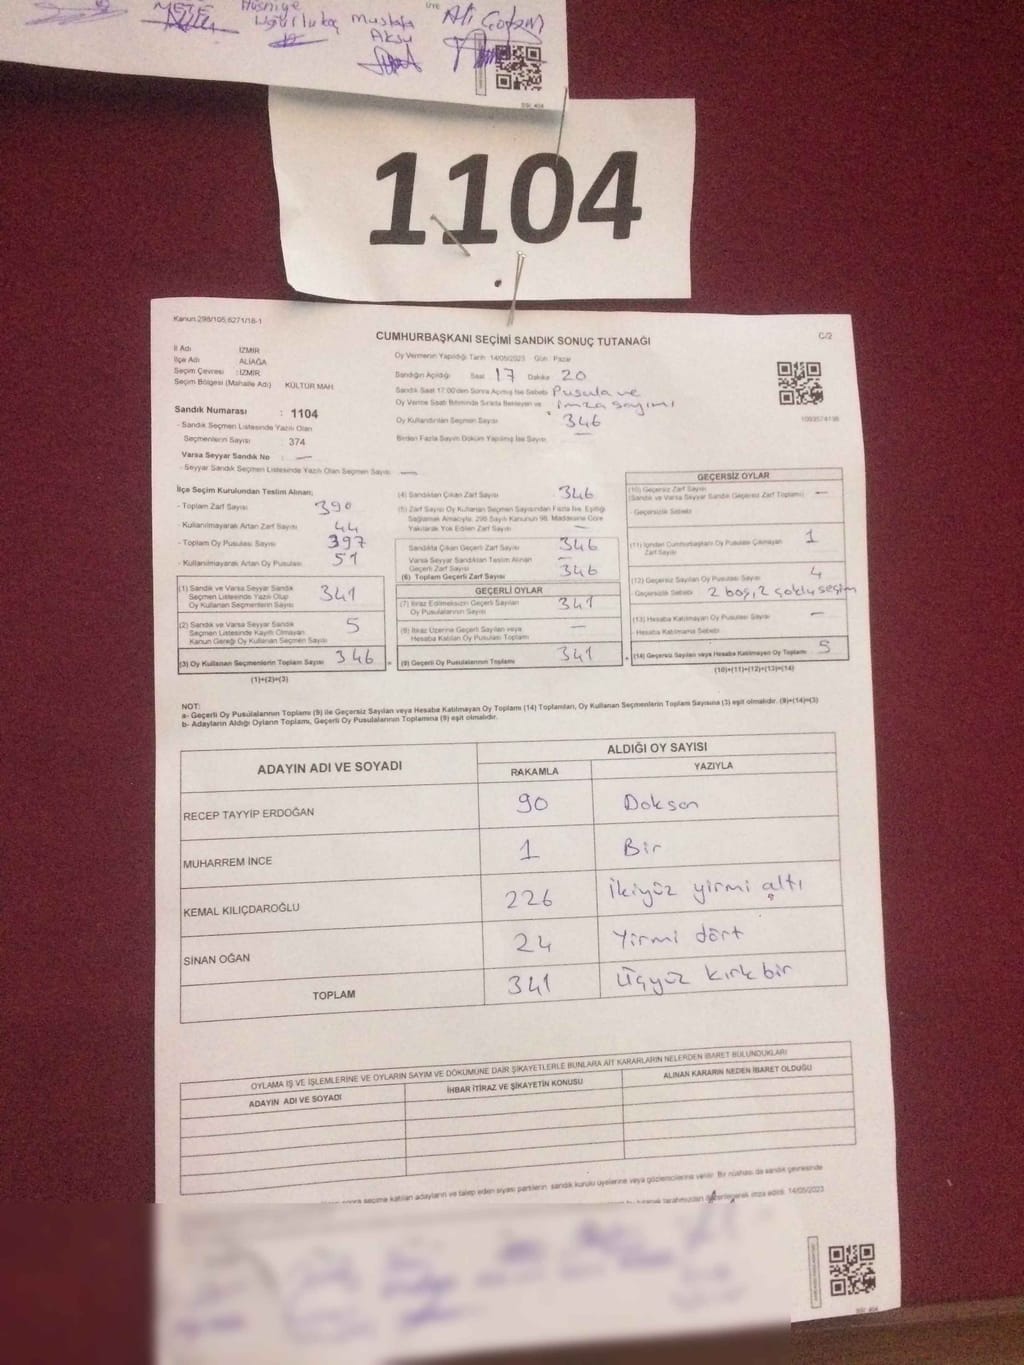 METE
Hüsniye
Uğurlukoç
Mustafa
Aksu
üye
Ali Coşkun
SSİ: 404
1104
Kanun 298/105;6271/18-1
C/2
CUMHURBAŞKANI SEÇİMİ SANDIK SONUÇ TUTANAĞI
İl Adı İZMİR
İlçe Adı ALİAĞA
Seçim Çevresi : İZMİR
Seçim Bölgesi (Mahalle Adı) KÜLTÜR MAH
Sandık Numarası : 1104
- Sandık Seçmen Listesinde Yazılı Olan
Seçmenlerin Sayısı : 374
Varsa Seyyar Sandık No : —
- Seyyar Sandık Seçmen Listesinde Yazılı Olan Seçmen Sayısı : —
Oy Vermenin Yapıldığı Tarih 14/05/2023 Gün : Pazar
Sandığın Açıldığı Saat 17 Dakika 20
Sandık Saat 17:00'den Sonra Açılmış İse Sebebi Pusula ve
Oy Verme Saati Bitiminde Sırada Bekleyen ve imza sayımı
Oy Kullandırılan Seçmen Sayısı 346
Birden Fazla Sayım Döküm Yapılmış İse Sayısı —
İlçe Seçim Kurulundan Teslim Alınan;
- Toplam Zarf Sayısı 390
- Kullanılmayarak Artan Zarf Sayısı 44
- Toplam Oy Pusulası Sayısı 397
- Kullanılmayarak Artan Oy Pusulası 51
(1) Sandık ve Varsa Seyyar Sandık
Seçmen Listesinde Yazılı Olup
Oy Kullanan Seçmenlerin Sayısı 341
(2) Sandık ve Varsa Seyyar Sandık
Seçmen Listesinde Kayıtlı Olmayan
Kanun Gereği Oy Kullanan Seçmen Sayısı 5
(3) Oy Kullanan Seçmenlerin Toplam Sayısı 346 =
(1)+(2)=(3)
(4) Sandıktan Çıkan Zarf Sayısı 346
(5) Zarf Sayısı Oy Kullanan Seçmen Sayısından Fazla İse, Eşitliği
Sağlamak Amacıyla, 298 Sayılı Kanunun 98. Maddesine Göre
Yakılarak Yok Edilen Zarf Sayısı —
Sandıkta Çıkan Geçerli Zarf Sayısı 346
Varsa Seyyar Sandıktan Teslim Alınan
Geçerli Zarf Sayısı —
(6) Toplam Geçerli Zarf Sayısı 346
GEÇERLİ OYLAR
(7) İtiraz Edilmeksizin Geçerli Sayılan
Oy Pusulalarının Sayısı 341
(8) İtiraz Üzerine Geçerli Sayılan veya
Hesaba Katılan Oy Pusulası Toplamı —
(9) Geçerli Oy Pusulalarının Toplamı 341 +
GEÇERSİZ OYLAR
(10) Geçersiz Zarf Sayısı
(Sandık ve Varsa Seyyar Sandık Geçersiz Zarf Toplamı) —
- Geçersizlik Sebebi
(11) İçinden Cumhurbaşkanı Oy Pusulası Çıkmayan
Zarf Sayısı 1
(12) Geçersiz Sayılan Oy Pusulası Sayısı 4
Geçersizlik Sebebi 2 boş, 2 çoklu seçim
(13) Hesaba Katılmayan Oy Pusulası Sayısı —
Hesaba Katılmama Sebebi
(14) Geçersiz Sayılan veya Hesaba Katılmayan Oy Toplamı 5
(10)+(11)+(12)+(13)=(14)
NOT:
a- Geçerli Oy Pusulalarının Toplamı (9) ile Geçersiz Sayılan veya Hesaba Katılmayan Oy Toplamı (14) Toplamları, Oy Kullanan Seçmenlerin Toplam Sayısına (3) eşit olmalıdır. (9)+(14)=(3)
b- Adayların Aldığı Oyların Toplamı, Geçerli Oy Pusulalarının Toplamına (9) eşit olmalıdır.
ADAYIN ADI VE SOYADI ALDIĞI OY SAYISI
RAKAMLA YAZIYLA
RECEP TAYYİP ERDOĞAN 90 Doksan
MUHARREM İNCE 1 Bir
KEMAL KILIÇDAROĞLU 226 İkiyüz yirmi altı
SİNAN OĞAN 24 Yirmi dört
TOPLAM 341 Üçyüz kırk bir
OYLAMA İŞ VE İŞLEMLERİNE VE OYLARIN SAYIM VE DÖKÜMÜNE DAİR ŞİKAYETLERLE BUNLARA AİT KARARLARIN NELERDEN İBARET BULUNDUKLARI
ADAYIN ADI VE SOYADI İHBAR İTİRAZ VE ŞİKAYETİN KONUSU ALINAN KARARIN NEDEN İBARET OLDUĞU
sonra seçime katılan adayların ve talep eden siyasi partilerin, sandık kurulu üyelerine veya gözlemcilerine verilir. Bir nüshası da sandık çevresinde
bu tutanak tarafımızdan düzenlenerek imza edildi. 14/05/2023
SSİ: 404